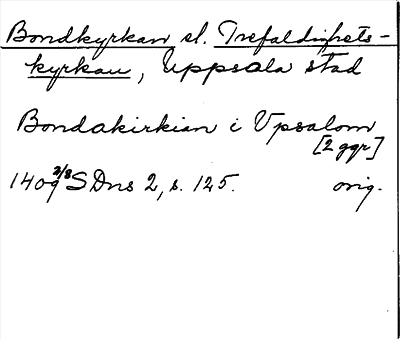 Bondkyrkan el. Trefaldighets-
kyrkan, Uppsala stad
Bondakirkian i Vpsalom
[2 ggr]
1409 3/8 SDns 2, s. 125. orig.